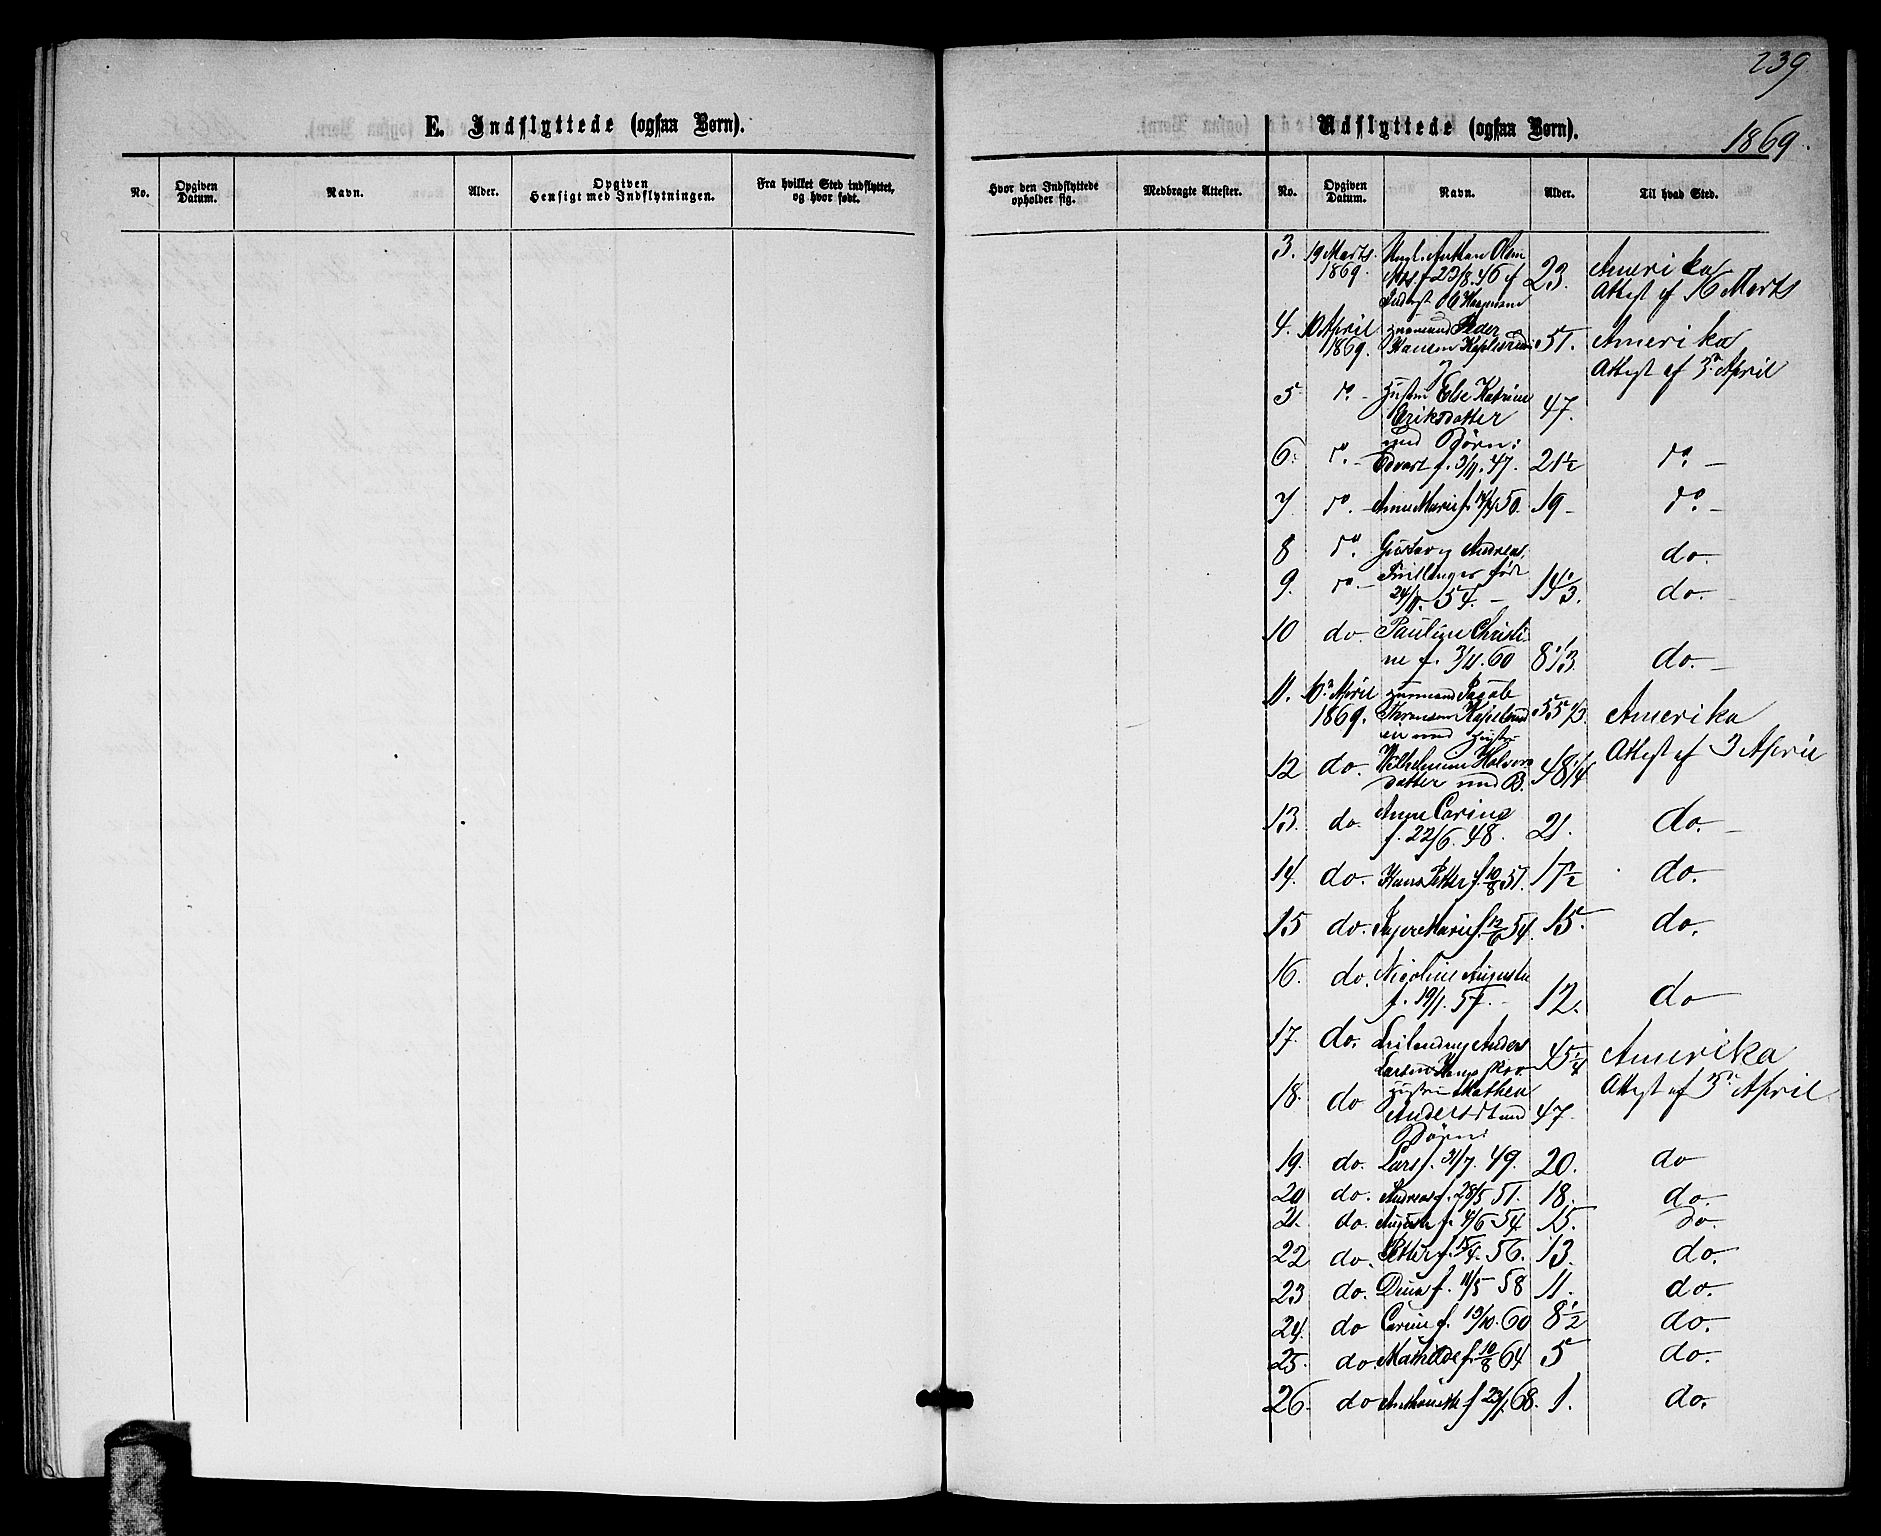 239
E. Indflyttede (ogsaa Børn).
Udflyttede (ogsaa Børn).
1869.
No. Opgiven Datum. Navn. Alder. Opgiven Hensigt med Indflytningen. Fra hvilket Sted indflyttet, og hvor født. Hvor den Indflyttede opholder sig. Medbragte Attester. No. Opgiven Datum. Navn. Alder. Til hvad Sted.
3. 19 Marts 1869. Olsen f 23/8.46 23. Amerika
Attest af 16 Marts
4. 10 April 1869. Huusmand Peder
Hansen 51. Amerika
Attest af 5 April
5 do. - Hustru Else Katrine
Eriksdatter 47.
med Børn:
6. do. - Edvart f. 3/11.47. 21½ do. -
7 do. - Anne Marie f. 50. 19 - do. -
8 do. Gustav og Andreas, do.
9. do. - Tvillinger født
24/11. 54. - 14 1/3. do.
10 do. Pauline Christi
ne f. 3/11.60 8 1/3 do. -
11. April 1869. Huusmand Jacob
med Hustru Amerika
Attest af 3 April
12 do. Vilhelmine Halvors
datter med B. 48 1/4
13. do. Anne Carine
f. 22/6.48. 21. do. -
14. do. Hans Petter f. 10/8 51. 17½ do.
15 do. Inger Marie f. 12/6 54. 15 do.
16. do. Nicoline Auguste
f. 19/1. 57. - 12. do
17. do. Leilending Anders
Larsen 45 1/4 Amerika
Attest af 5 April
18. do Hustru Mathea
Andersdt med 47.
Børn:
19. do. Lars f. 31/7. 49. 20. do
20 do. Andreas f. 28/5 51. 18. do.
21. do. Auguste f. 4/6 54 15. do.
22 do. Petter f. 15/4. 56. 13. do.
23 do. Dina f. 11/5 58 11. do.
24. do Carine f. 13/10.60 8½ do.
25. do Mathilde f. 10/8 64 5 do.
26. do f 23/1 68. 1. do.